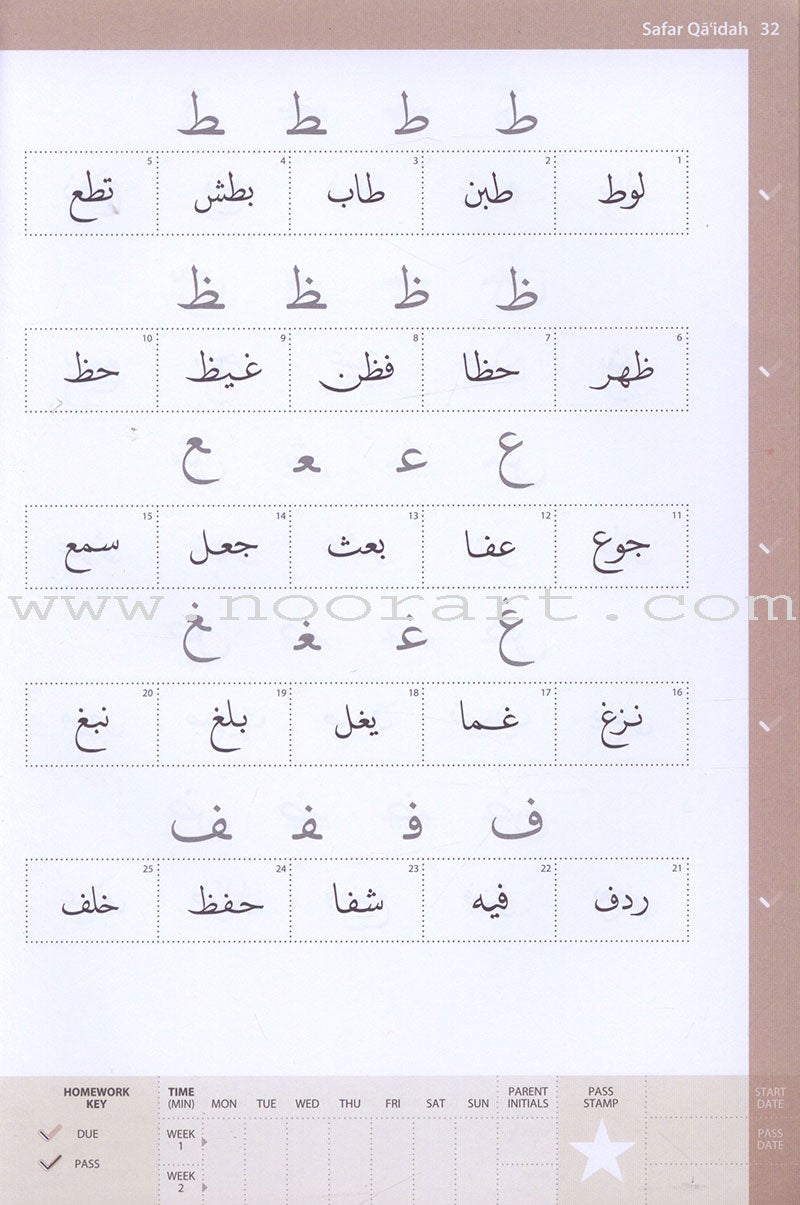 Safar Qāʿidah 32
ط ط ـط ـط
1 2 3 4 5
لوط طبن طاب بطش تطع
ظ ظ ـظ ـظ
6 7 8 9 10
ظهر حظا فظن غيظ حظ
ع عـ ـعـ ـع
11 12 13 14 15
جوع عفا بعث جعل سمع
www.noorart.com
غ غـ ـغـ ـغ
16 17 18 19 20
نزغ غما يغل بلغ نبغ
ف فـ ـفـ ـف
21 22 23 24 25
ردف فيه شفا حفظ خلف
HOMEWORK KEY
DUE
PASS
TIME (MIN) MON TUE WED THU FRI SAT SUN PARENT INITIALS PASS STAMP START DATE
WEEK 1 PASS DATE
WEEK 2